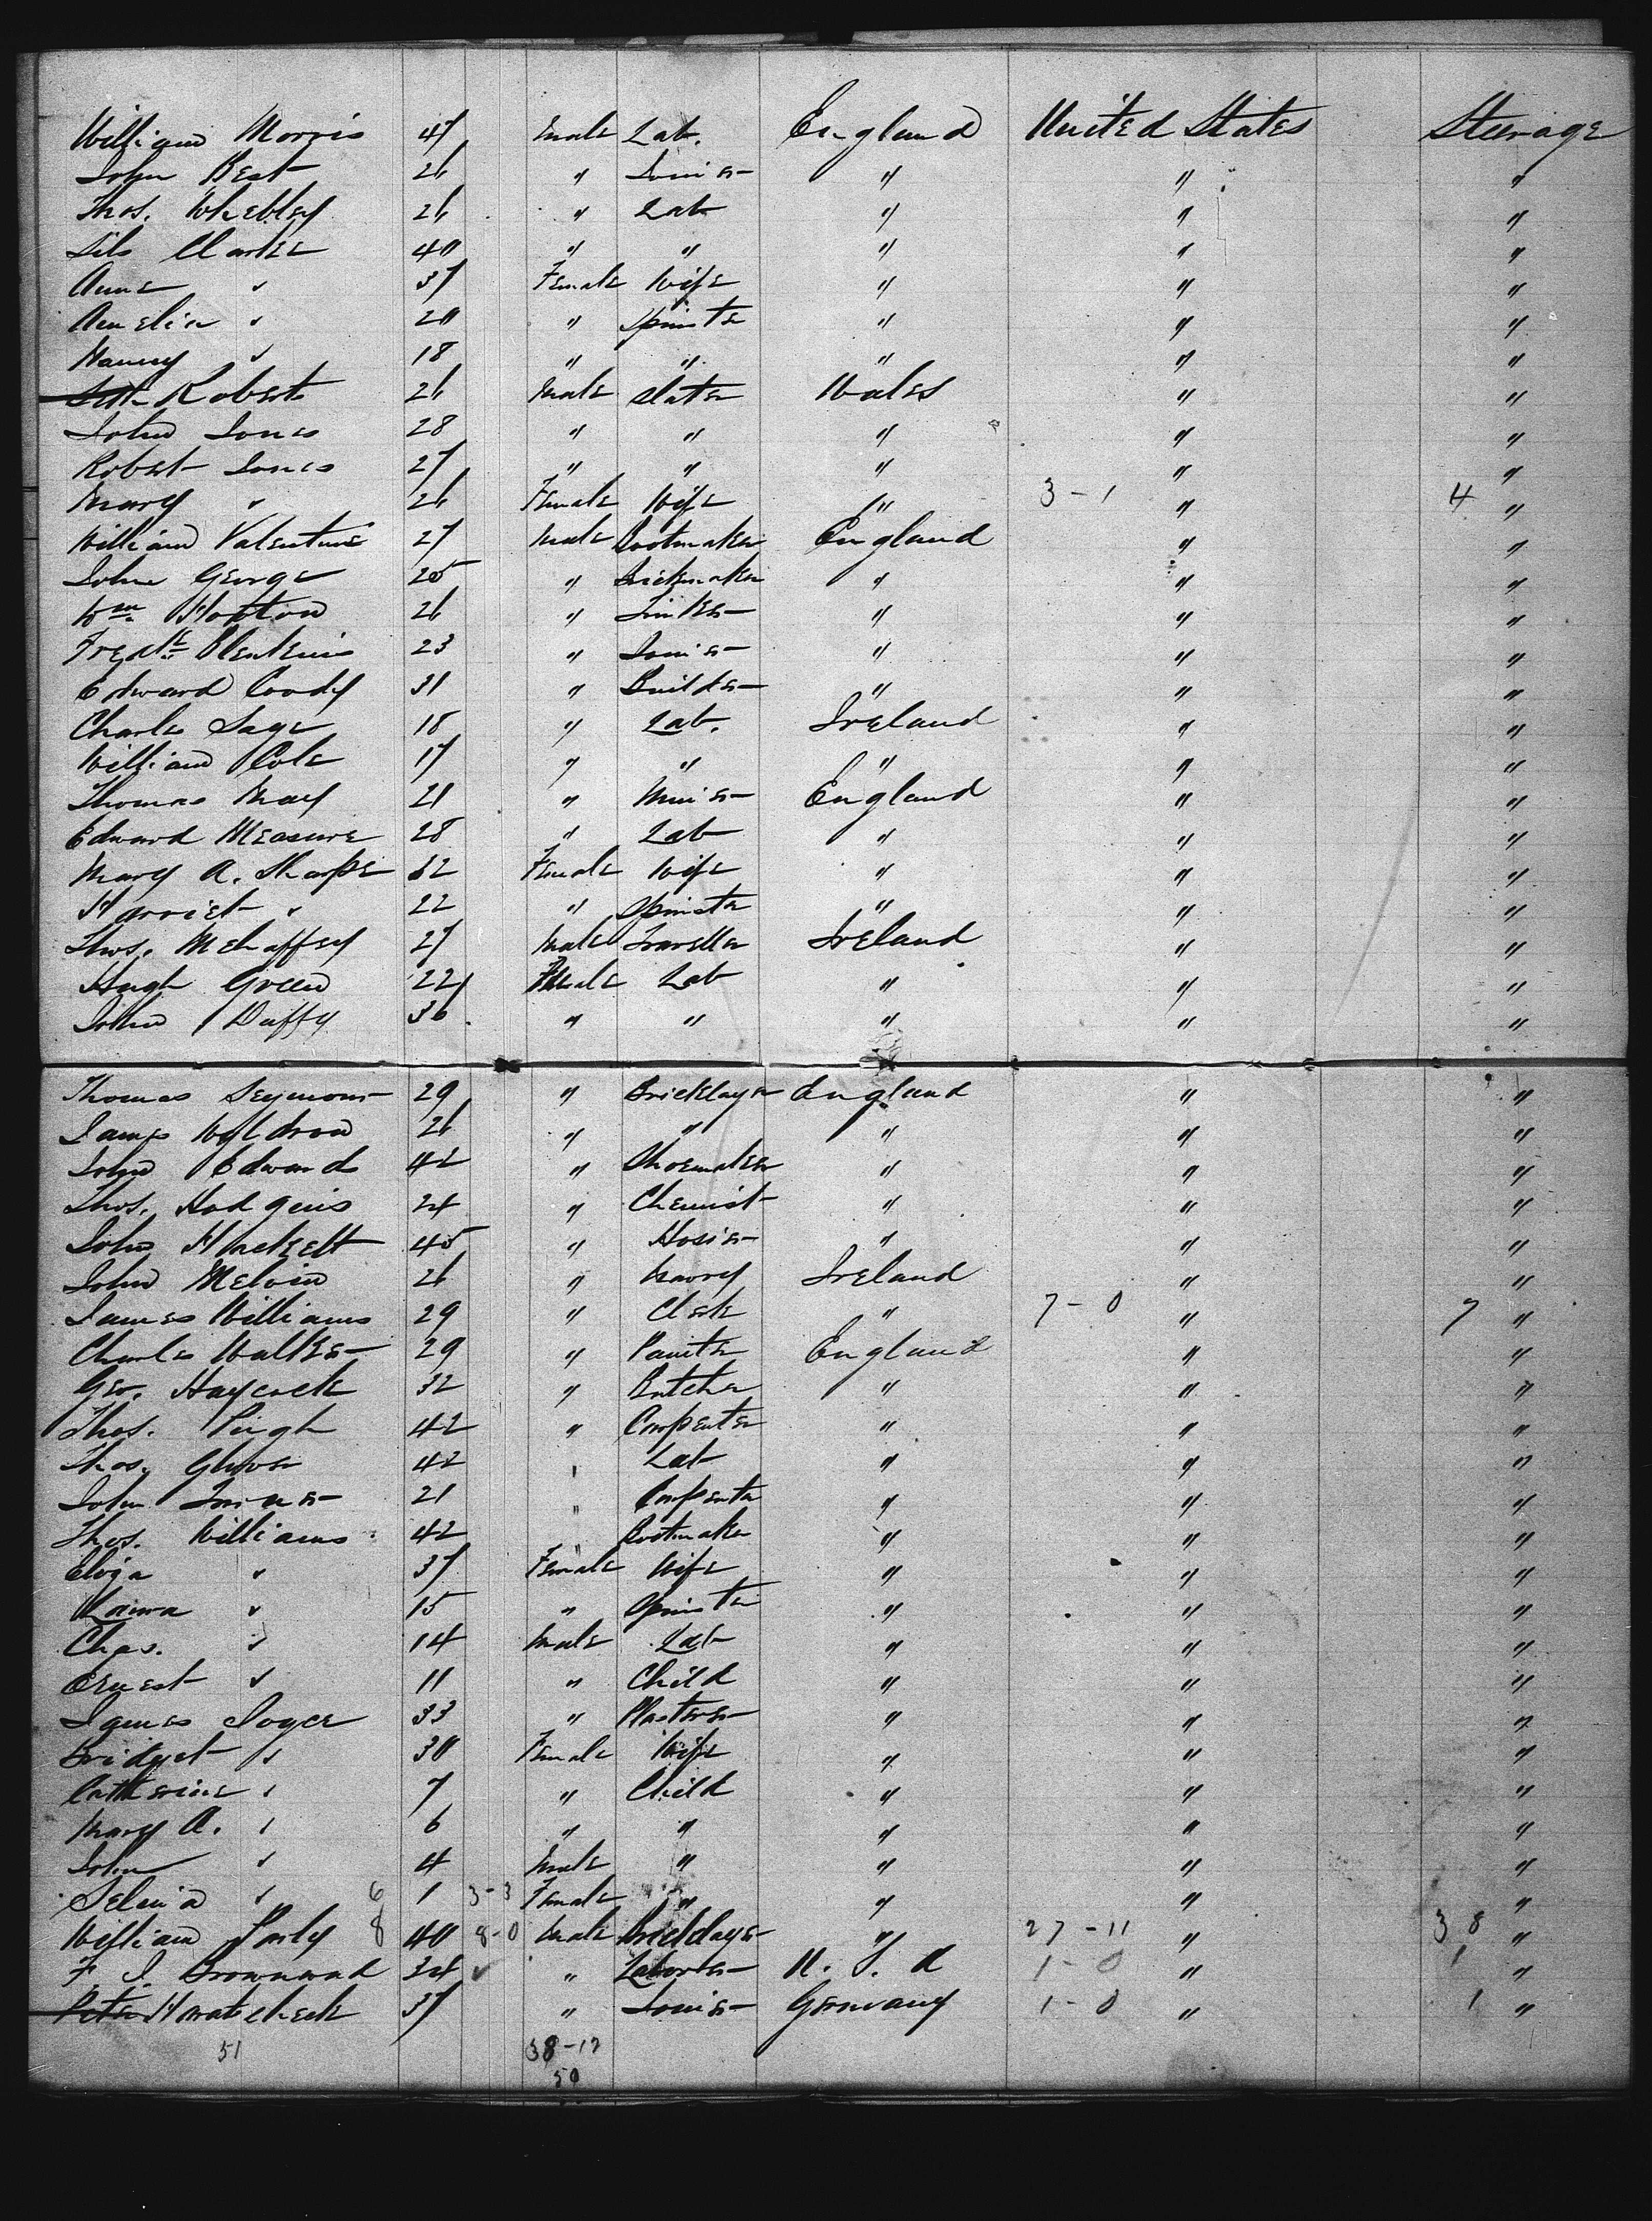 William Morris 47 Male Lab. England United States Steerage
John Best 26 " Joiner " " "
Thos. Whebley 26 " Lab " " "
Silo Clarke 40 " " " " "
Anne " 37 Female Wife " " "
Amelia " 20 " Spinster " " "
Nancy " 18 " " " " "
Roberts 26 Male Slater Wales " "
John Jones 28 " " " " "
Robert Jones 27 " " " " "
Mary " 26 Female Wife " 3-1 " 4 "
William Valentine 27 Male Bootmaker England " "
John George 25 " Brickmaker " " "
Wm. Hopton 26 " " " "
Fredk. 23 " Joiner " " "
Edward Coody 31 " Builder " " "
Charles Sage 18 " Lab. Ireland " "
William Cole 17 " " " " "
Thomas May 21 " Miner England " "
Edward Measure 28 " Lab " " "
Mary A. Sharpe 32 Female Wife " " "
Harriet " 22 " Spinster " " "
Thos. Mehaffey 27 Male Traveller Ireland " "
Hugh Green 22 Male Lab " " "
John Duffy 36 " " " " "
Thomas Seymour 29 " Bricklayer England " "
James Woldron 26 " " " " "
John Edwards 42 " Shoemaker " " "
Thos. Hodgins 24 " Chemist " " "
John Hackett 45 " Hosier " " "
John Melvin 26 " Navvy Ireland " "
James Williams 29 " Clerk " 7-0 " 7 "
Charles Walker 29 " Painter England " "
Geo. Haycock 32 " Butcher " " "
Thos. Pugh 42 " Carpenter " " "
Thos. Glover 42 " Lab " " "
John 21 " Carpenter " " "
Thos. Williams 42 Bootmaker " " "
Eliza " 37 Female Wife " " "
Laura " 15 " Spinster " " "
Chas. " 14 Male Lab " " "
Ernest " 11 " Child " " "
James Joyce 33 " Plasterer " " "
Bridget " 30 Female Wife " " "
Catherine " 7 " Child " " "
Mary A. " 6 " " " " "
John " 4 Male " " " "
Selina " 6 1 3-3 Female " " " "
William 8 40 8-0 Male Bricklayer " 27-11 " 38 "
F. J. 34 " Laborer U. S. A 1-0 " 1 "
Peter 37 " Joiner Germany 1-0 " 1 "
51 38-12
50